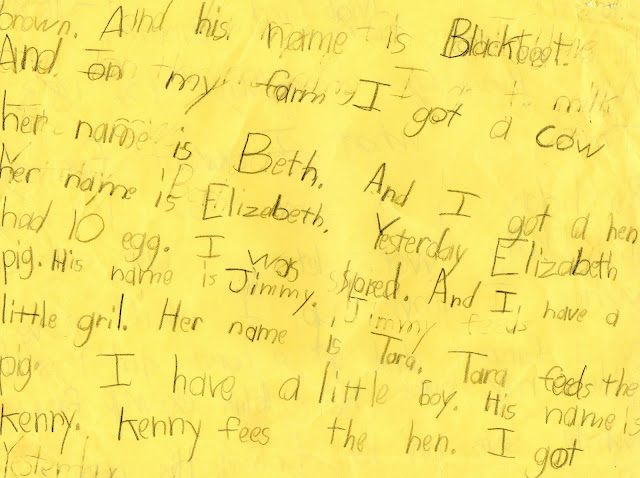 brown. And his name is Blackbeet.
And on my farm I got a cow
her name is Beth. And I got a hen
her name is Elizabeth. Yesterday Elizabeth
had 10 egg. I was spired. And I have a
pig. His name is Jimmy.
little gril. Her name is Tara. Tara feeds the
pig. I have a little boy. His name is
Kenny. Kenny fees the hen. I got
Yesterday